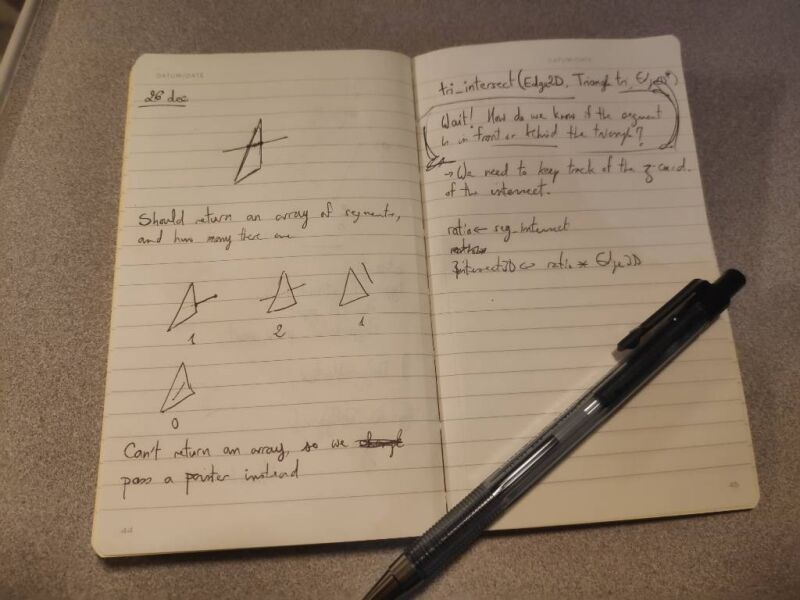 DATUM/DATE
26 dec
Should return an array of segments,
and how many there are
1
2
1
0
Can't return an array, so we
pass a pointer instead
44
DATUM/DATE
tri_intersect(Edge2D, Triangle tri,
Wait! How do we know if the segment
is in front or behind the triangle?
→ We need to keep track of the z-coord.
of the intersect.
ratio ← seg_intersect
ratio * Edge2D
45